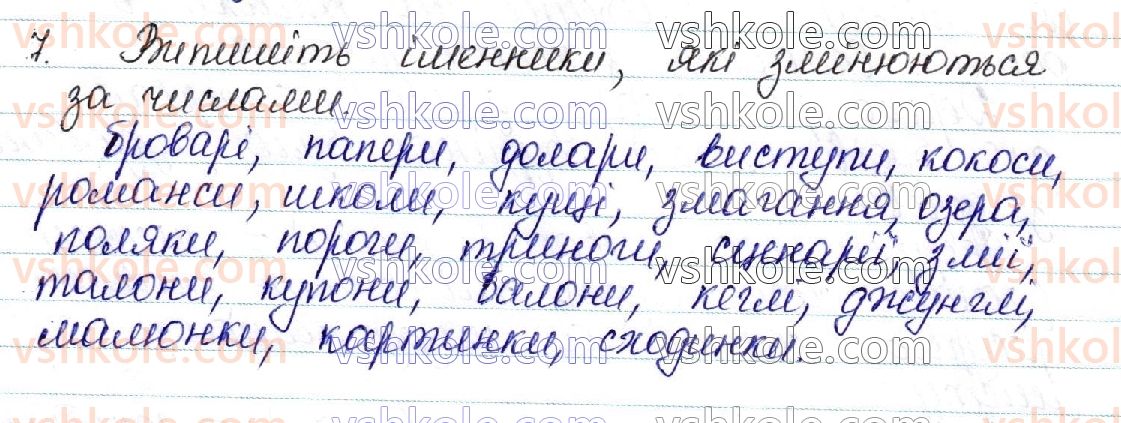 7. Випишіть іменники, які змінюються
за числами.
броварі, папери, долари, виступи, кокоси,
романси, школи, кущі, змагання, озера,
поляки, пороги, триноги, сценарії, змії,
талони, купони, балони, кеглі, джунглі,
малюнки, картинки, сходинки.